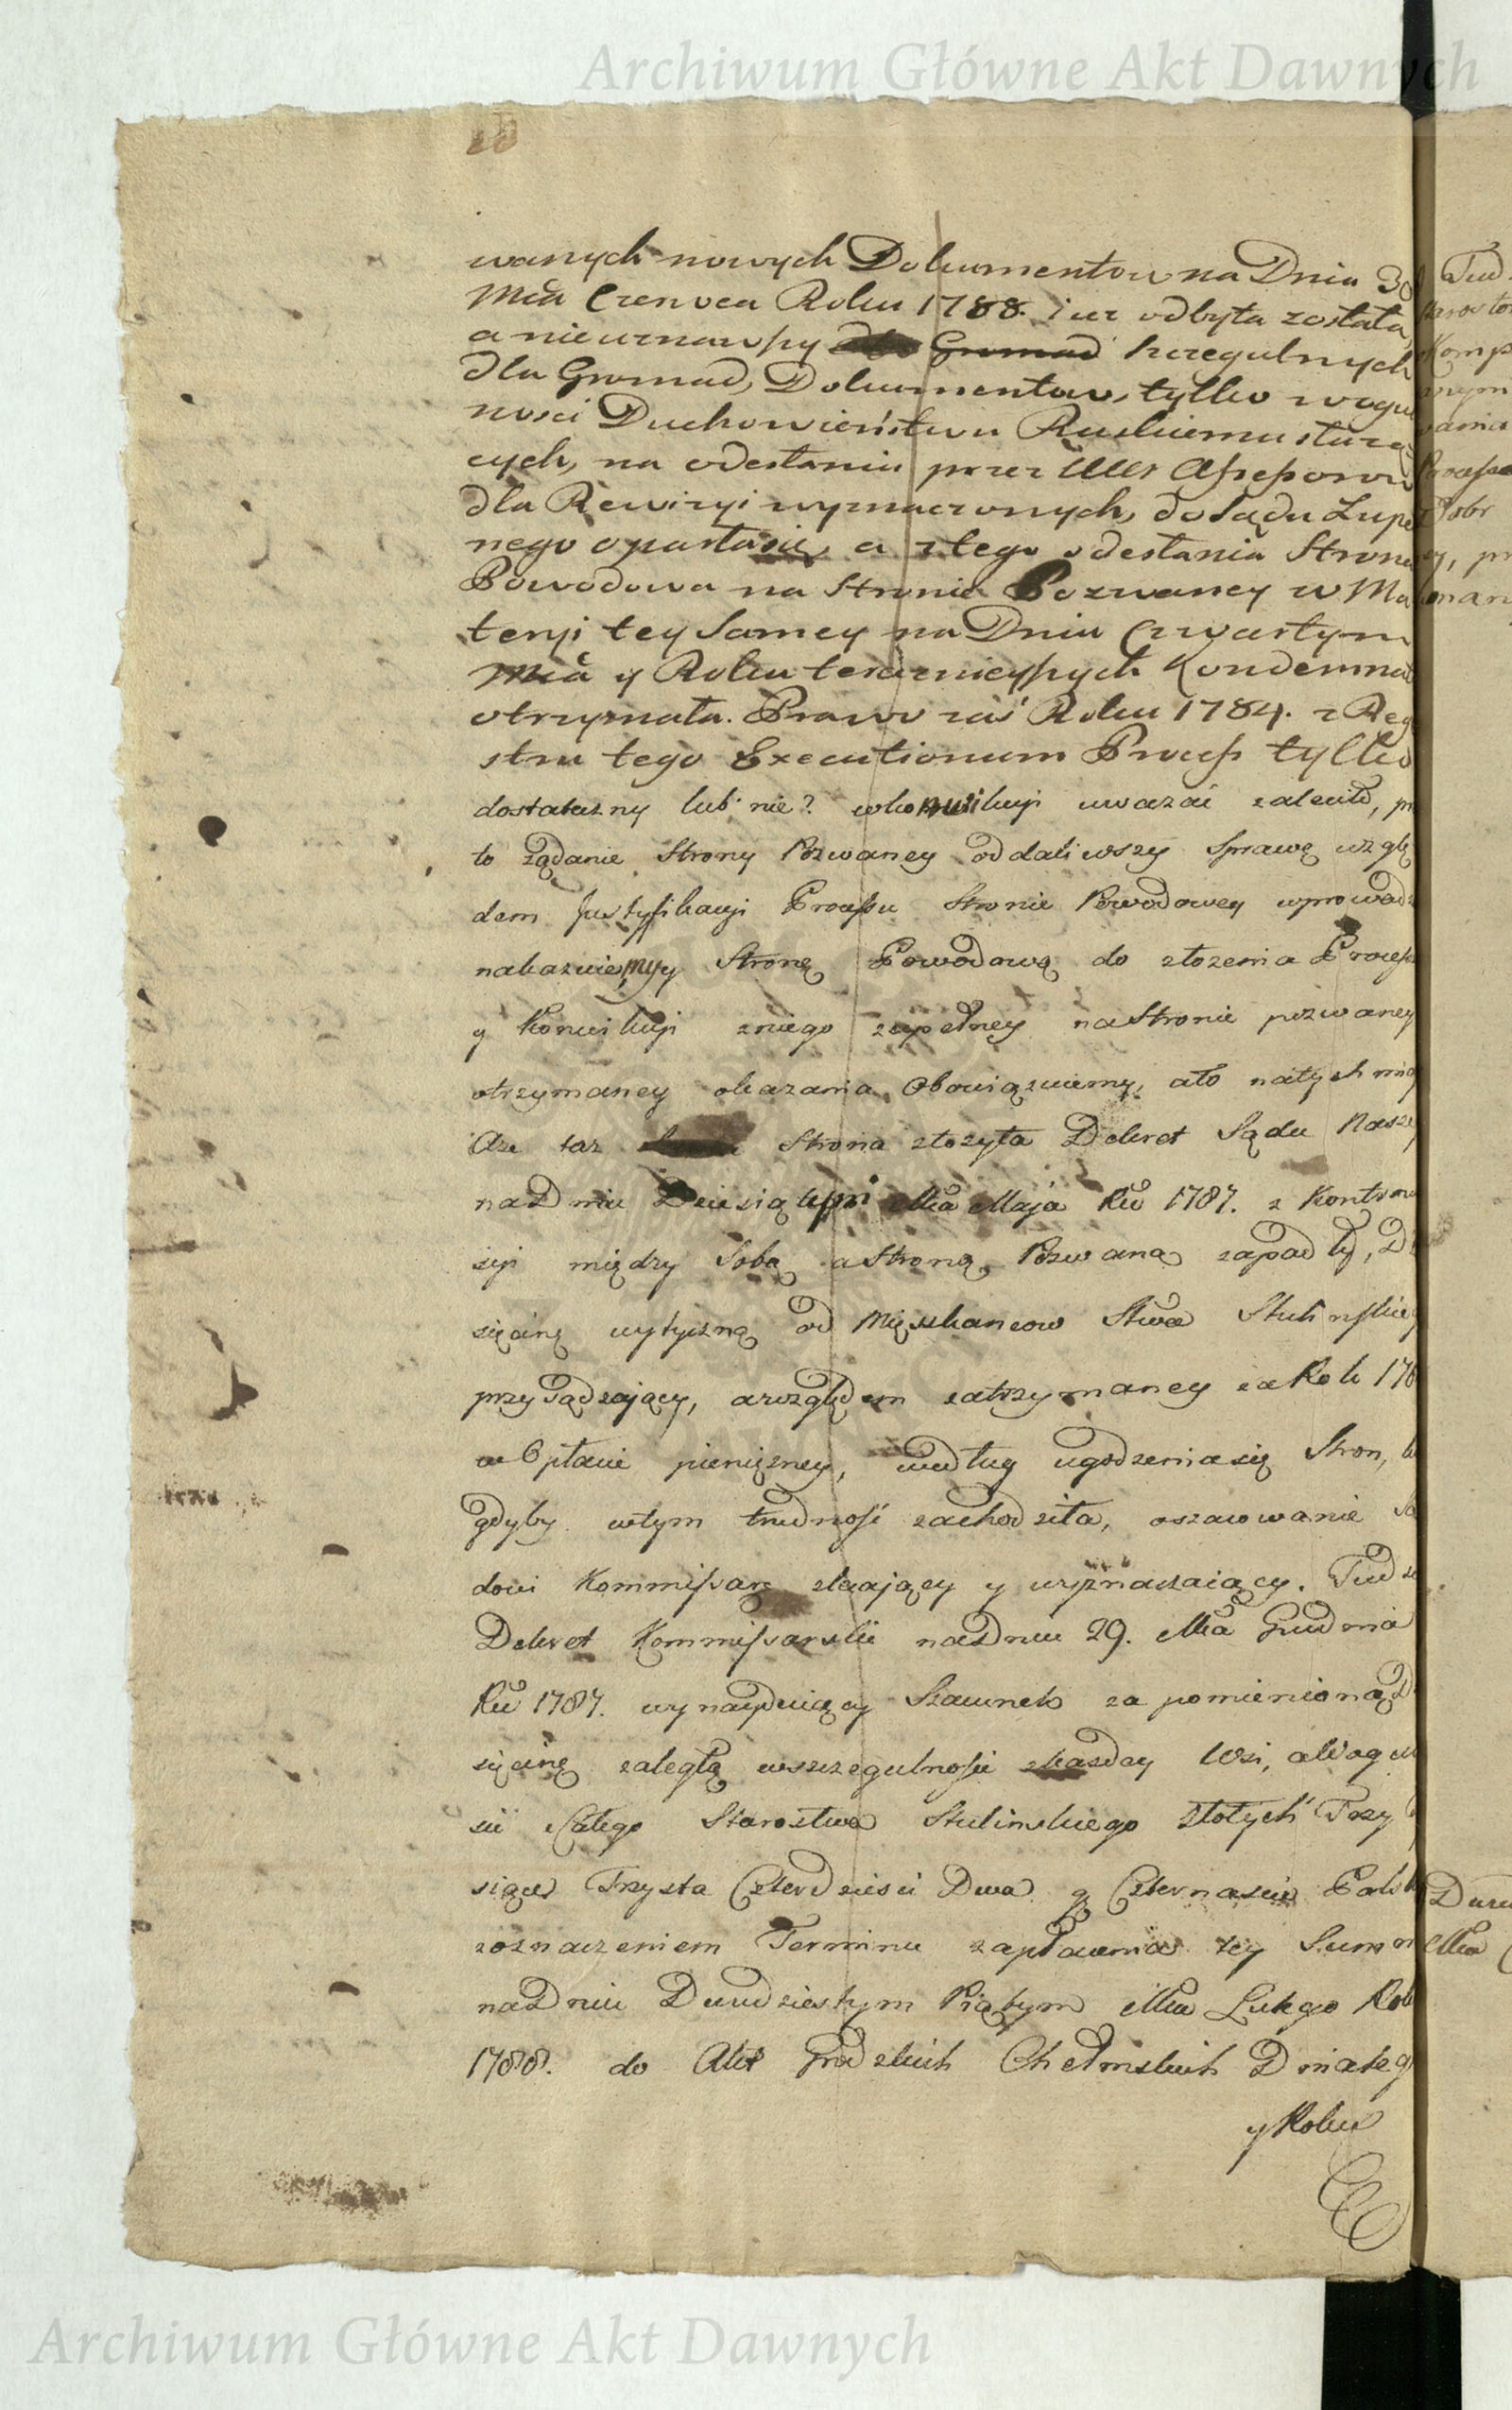 Archiwum Główne Akt Dawnych
wanych nowych Dokumentow na Dniu 30
Mca Czerwca Roku 1788. iuz odbyta została,
a nieuznawszy Gromad szczegulnych
dla Gromad, Dokumentow, tylko w ogul
nosci Duchowieństwu Ruskiemu służą
cych, na odesłaniu przez UUr Assessorow
dla Rewizyi wyznaczonych, do Sądu Zupeł
nego oparta się, a z tego odesłania Strona
Powodowa na Stronie Pozwaney w Ma
teryi tey Samey na Dniu Czwartym
Mca y Roku teraznieyszych Kondemnat
otrzymała. Prawo zaś Roku 1784. z Reg
stru tego Executionum Process tylko
dostateczny lub nie? w konwikcyi uwazać zaleciło, prze
to żądanie Strony Pozwaney oddaliwszy Sprawę wzglę
dem Justyfikacyi Processu Stronie Powodowey wprowadz
nakazuiemy, y Stronę Powodową do złozenia Process
y Konwikcyi zniego zupełney na Stronie pozwaney
otrzymaney okazania Obowiązuiemy, a to natychmia
Aze taz Strona złozyła Dekret Sądu Nasze
na Dniu Dziesiątym Mca Maja Ru 1787. z Kontrow
syi między Sobą a Stroną Pozwaną zapadły, Dz
sięcinę wytyczną od Mięszkancow Stwa Stulinskieg
przysądzający, a względem zatrzymaney za Rok 178
w Opłacie pienięzney, według ugodzenia się Stron, l
gdyby w tym trudność zachodziła, oszacowanie Są
dowi Kommissarz zkaający y wyznaczaiący. Tudz
Dekret Kommissarski na Dniu 29. Mca Grudnia
Ru 1787. wynayduiący Szacunek za pomienioną D
sięcinę zaległą w szczegulności z kazdey Wsi, a w ogul
sci Całego Starostwa Stulinskiego Złotych Trzy
siące Trzysta Czterdziesci Dwa g Czternascie
z oznaczeniem Terminu zapłacenia tey Summ
na Dniu Dwudziestym Piątym Mca Lutego Rok
1788. do Akt Grodzkich Chełmskich Dnia teg
y Roku
Archiwum Główne Akt Dawnych